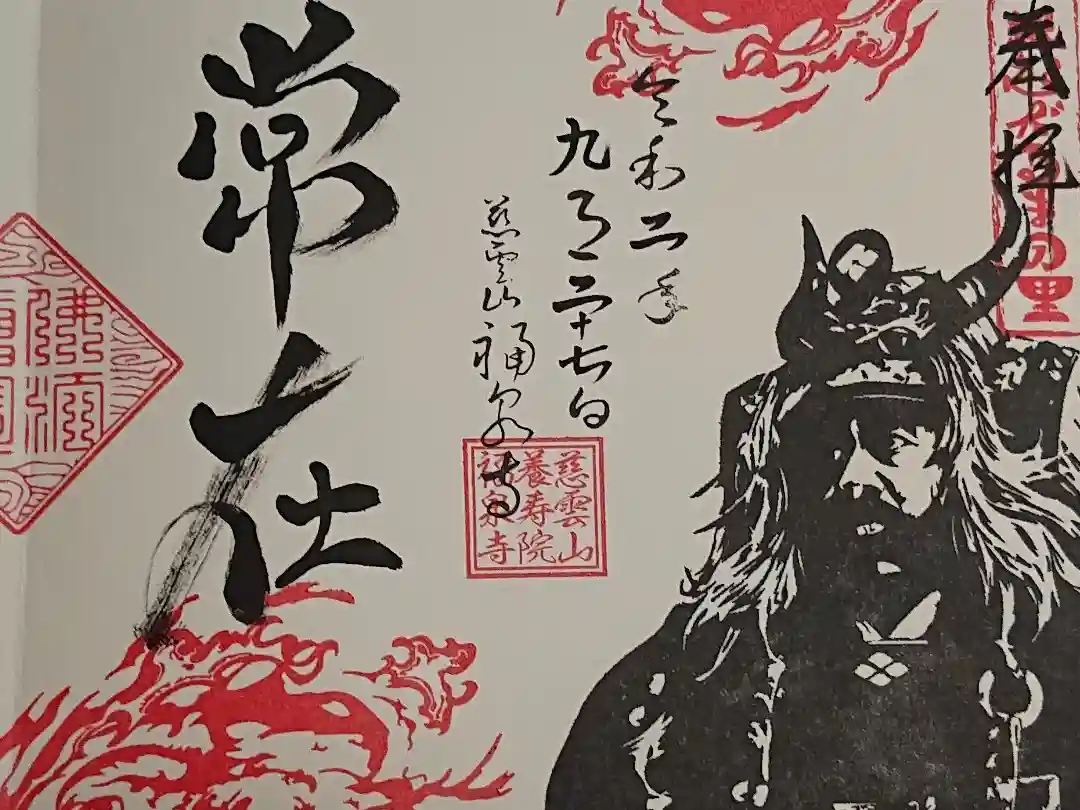 奉拝
の里
令和二年
九月二十七日
慈雲山福泉寺
慈雲山
養寿院
福泉寺
常在